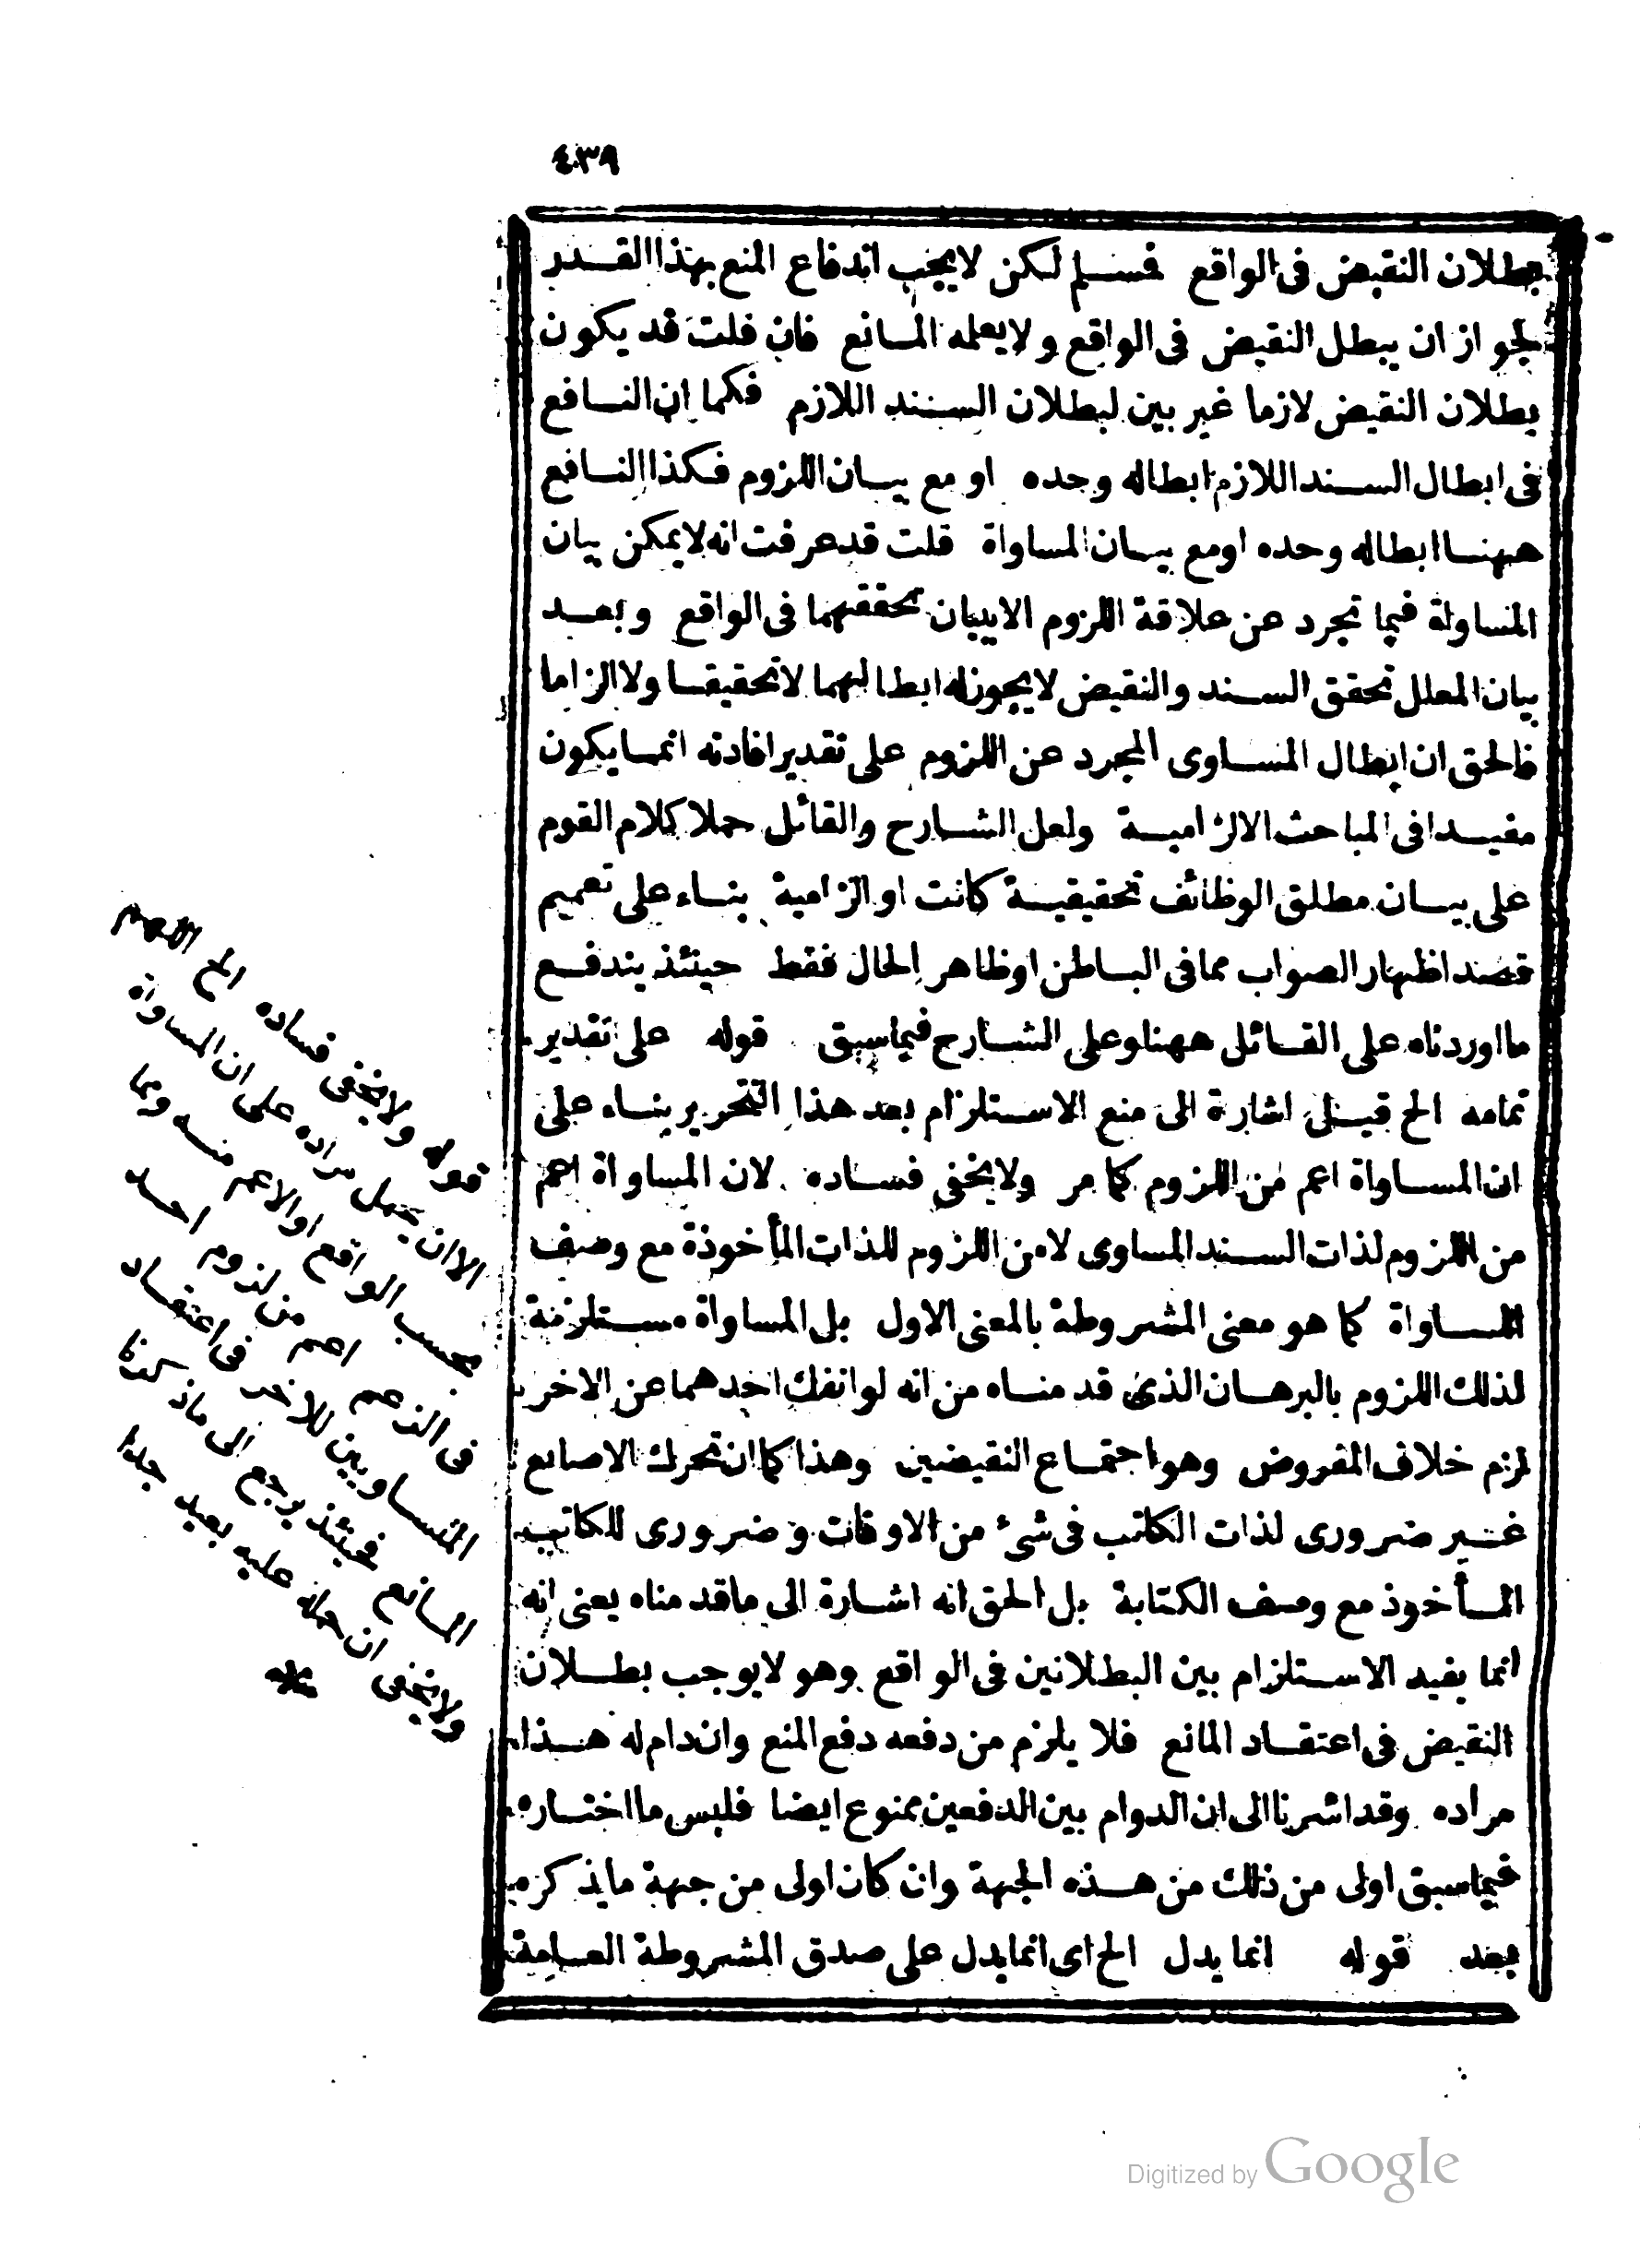 ٤٣٩
بطلان النقيض فى الواقع فمسلم لكن لا يجب اندفاع المنع بهذا القدر
لجواز ان يبطل النقيض فى الواقع ولا يعلمه المانع فان قلت قد يكون
بطلان النقيض لازما غير بين لبطلان السند اللازم فكما ان النافع
فى ابطال السند اللازم ابطاله وحده او مع بيان اللزوم فكذا النافع
ههنا ابطاله وحده او مع بيان المساواة قلت قد عرفت انه لا يمكن بيان
المساواة فيما تجرد عن علاقة اللزوم الا ببيان تحققهما فى الواقع وبعد
بيان المعلل تحقق السند والنقيض لا يجوز له ابطالهما لا تحقيقا ولا الزاما
فالحق ان ابطال المساوى المجرد عن اللزوم على تقدير افادته انما يكون
مفيدا فى المباحث الالزامية ولعل الشارح والقائل حملا كلام القوم
على بيان مطلق الوظائف تحقيقية كانت او الزامية بناء على تعميم
قصد اظهار الصواب مما فى الباطن او ظاهر الحال فقط حينئذ يندفع
ما اوردناه على القائل ههنا وعلى الشارح فيما سبق قوله على تقدير
تمامه الخ قيل اشارة الى منع الاستلزام بعد هذا التحرير بناء على
ان المساواة اعم من اللزوم كما مر ولا يخفى فساده لان المساواة اعم
من اللزوم لذات السند المساوى لا من اللزوم للذات المأخوذة مع وصف
المساواة كما هو معنى المشروطة بالمعنى الاول بل المساواة مستلزمة
لذلك اللزوم بالبرهان الذى قدمناه من انه لو انفك احدهما عن الاخر
لزم خلاف المفروض وهو اجتماع النقيضين وهذا كما ان تحرك الاصابع
غير ضرورى لذات الكاتب فى شئ من الاوقات وضرورى للكاتب
المأخوذ مع وصف الكتابة بل الحق انه اشارة الى ما قدمناه يعنى انه
انما يفيد الاستلزام بين البطلانين فى الواقع وهو لا يوجب بطلان
النقيض فى اعتقاد المانع فلا يلزم من دفعه دفع المنع وان دام له هذا
مراده وقد اشرنا الى ان الدوام بين الدفعين ممنوع ايضا فليس ما اختاره
فيما سبق اولى من ذلك من هذه الجهة وان كان اولى من جهة ما يذكره
بعد قوله انما يدل الخ اى انما يدل على صدق المشروطة العامة
قوله ولا يخفى فساده الخ اللهم
الا ان يحمل مراده على ان المساواة
بحسب الواقع او الاعم منه ومما
فى الزعم اعم من لزوم احد
المتساويين للاخر فى اعتقاد
المانع فحينئذ يرجع الى ما ذكرنا
ولا يخفى ان حمله عليه بعيد جدا
Digitized by Google